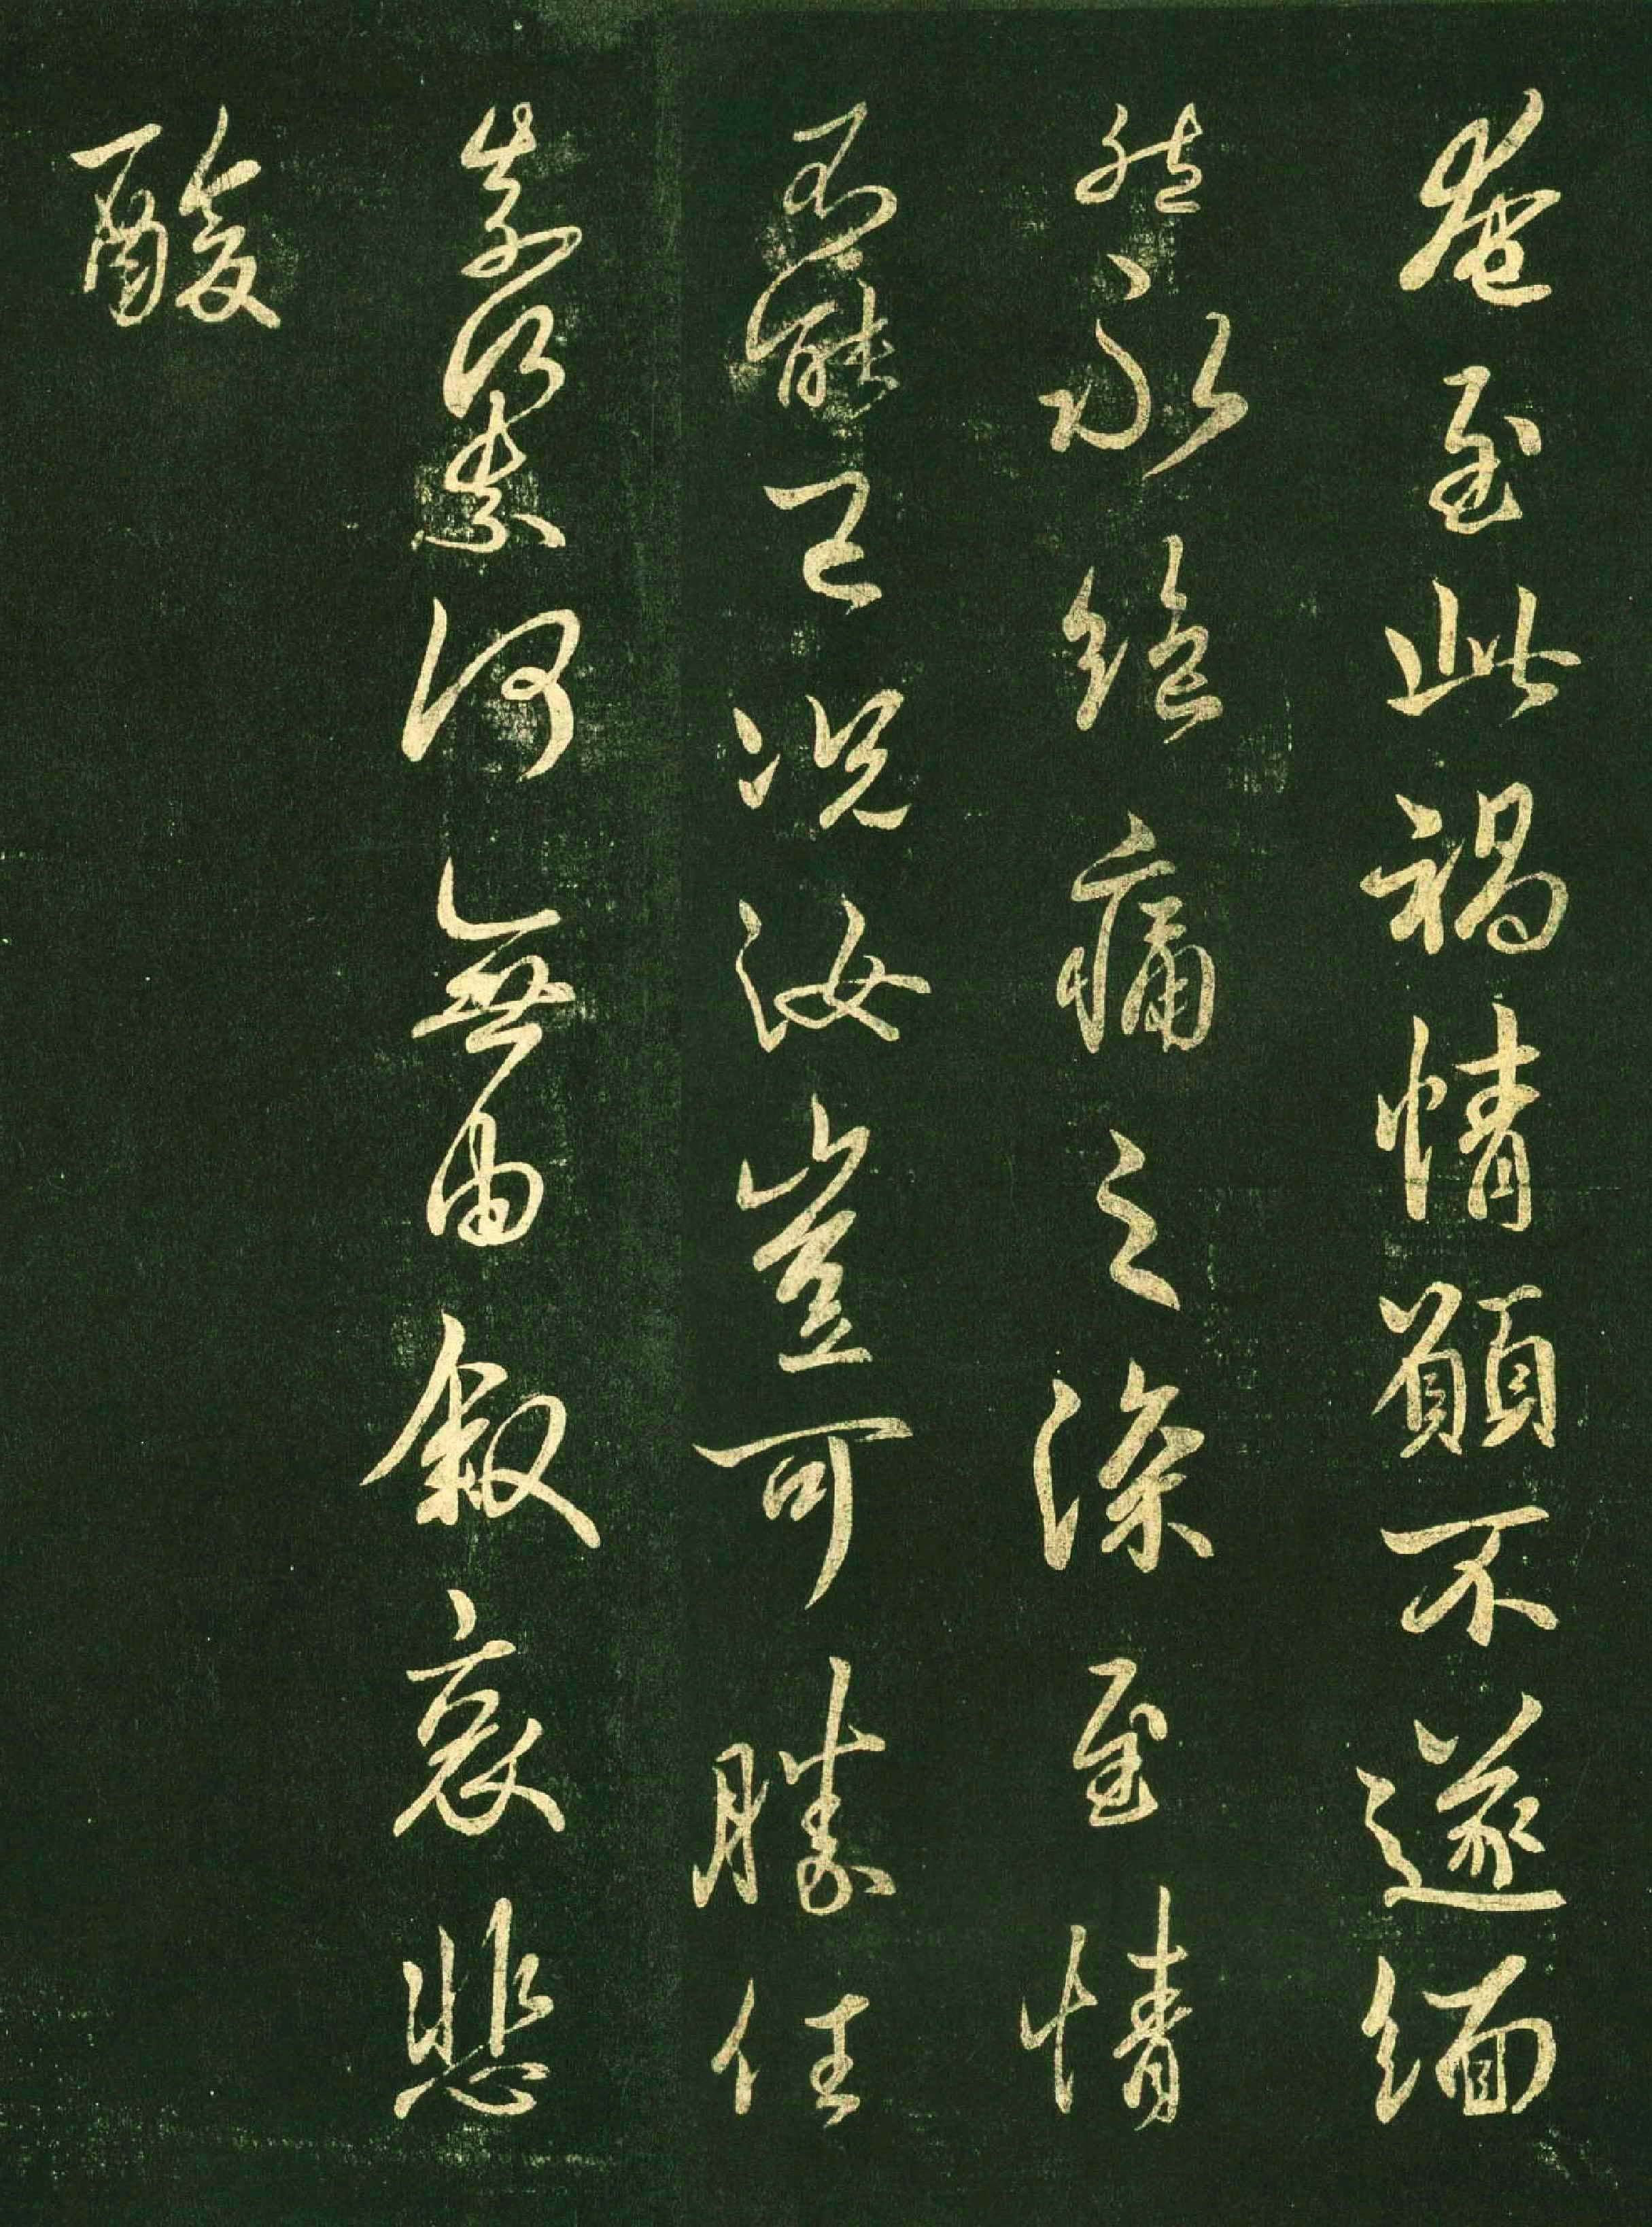 奄至此禍情願不遂緬
然永絕痛之深至情
不能已況汝豈可勝任
奈何奈何無由敘哀悲
酸